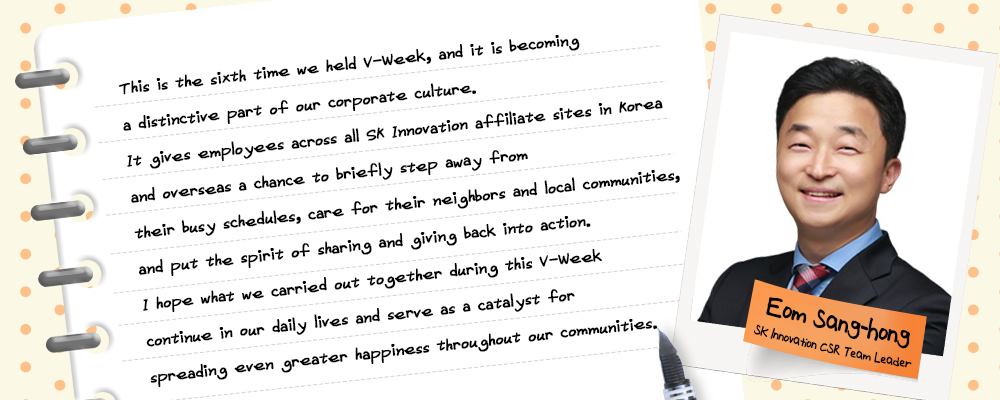 This is the sixth time we held V-Week, and it is becoming
a distinctive part of our corporate culture.
It gives employees across all SK Innovation affiliate sites in Korea
and overseas a chance to briefly step away from
their busy schedules, care for their neighbors and local communities,
and put the spirit of sharing and giving back into action.
I hope what we carried out together during this V-Week
continue in our daily lives and serve as a catalyst for
spreading even greater happiness throughout our communities.
Eom Sang-hong
SK Innovation CSR Team Leader